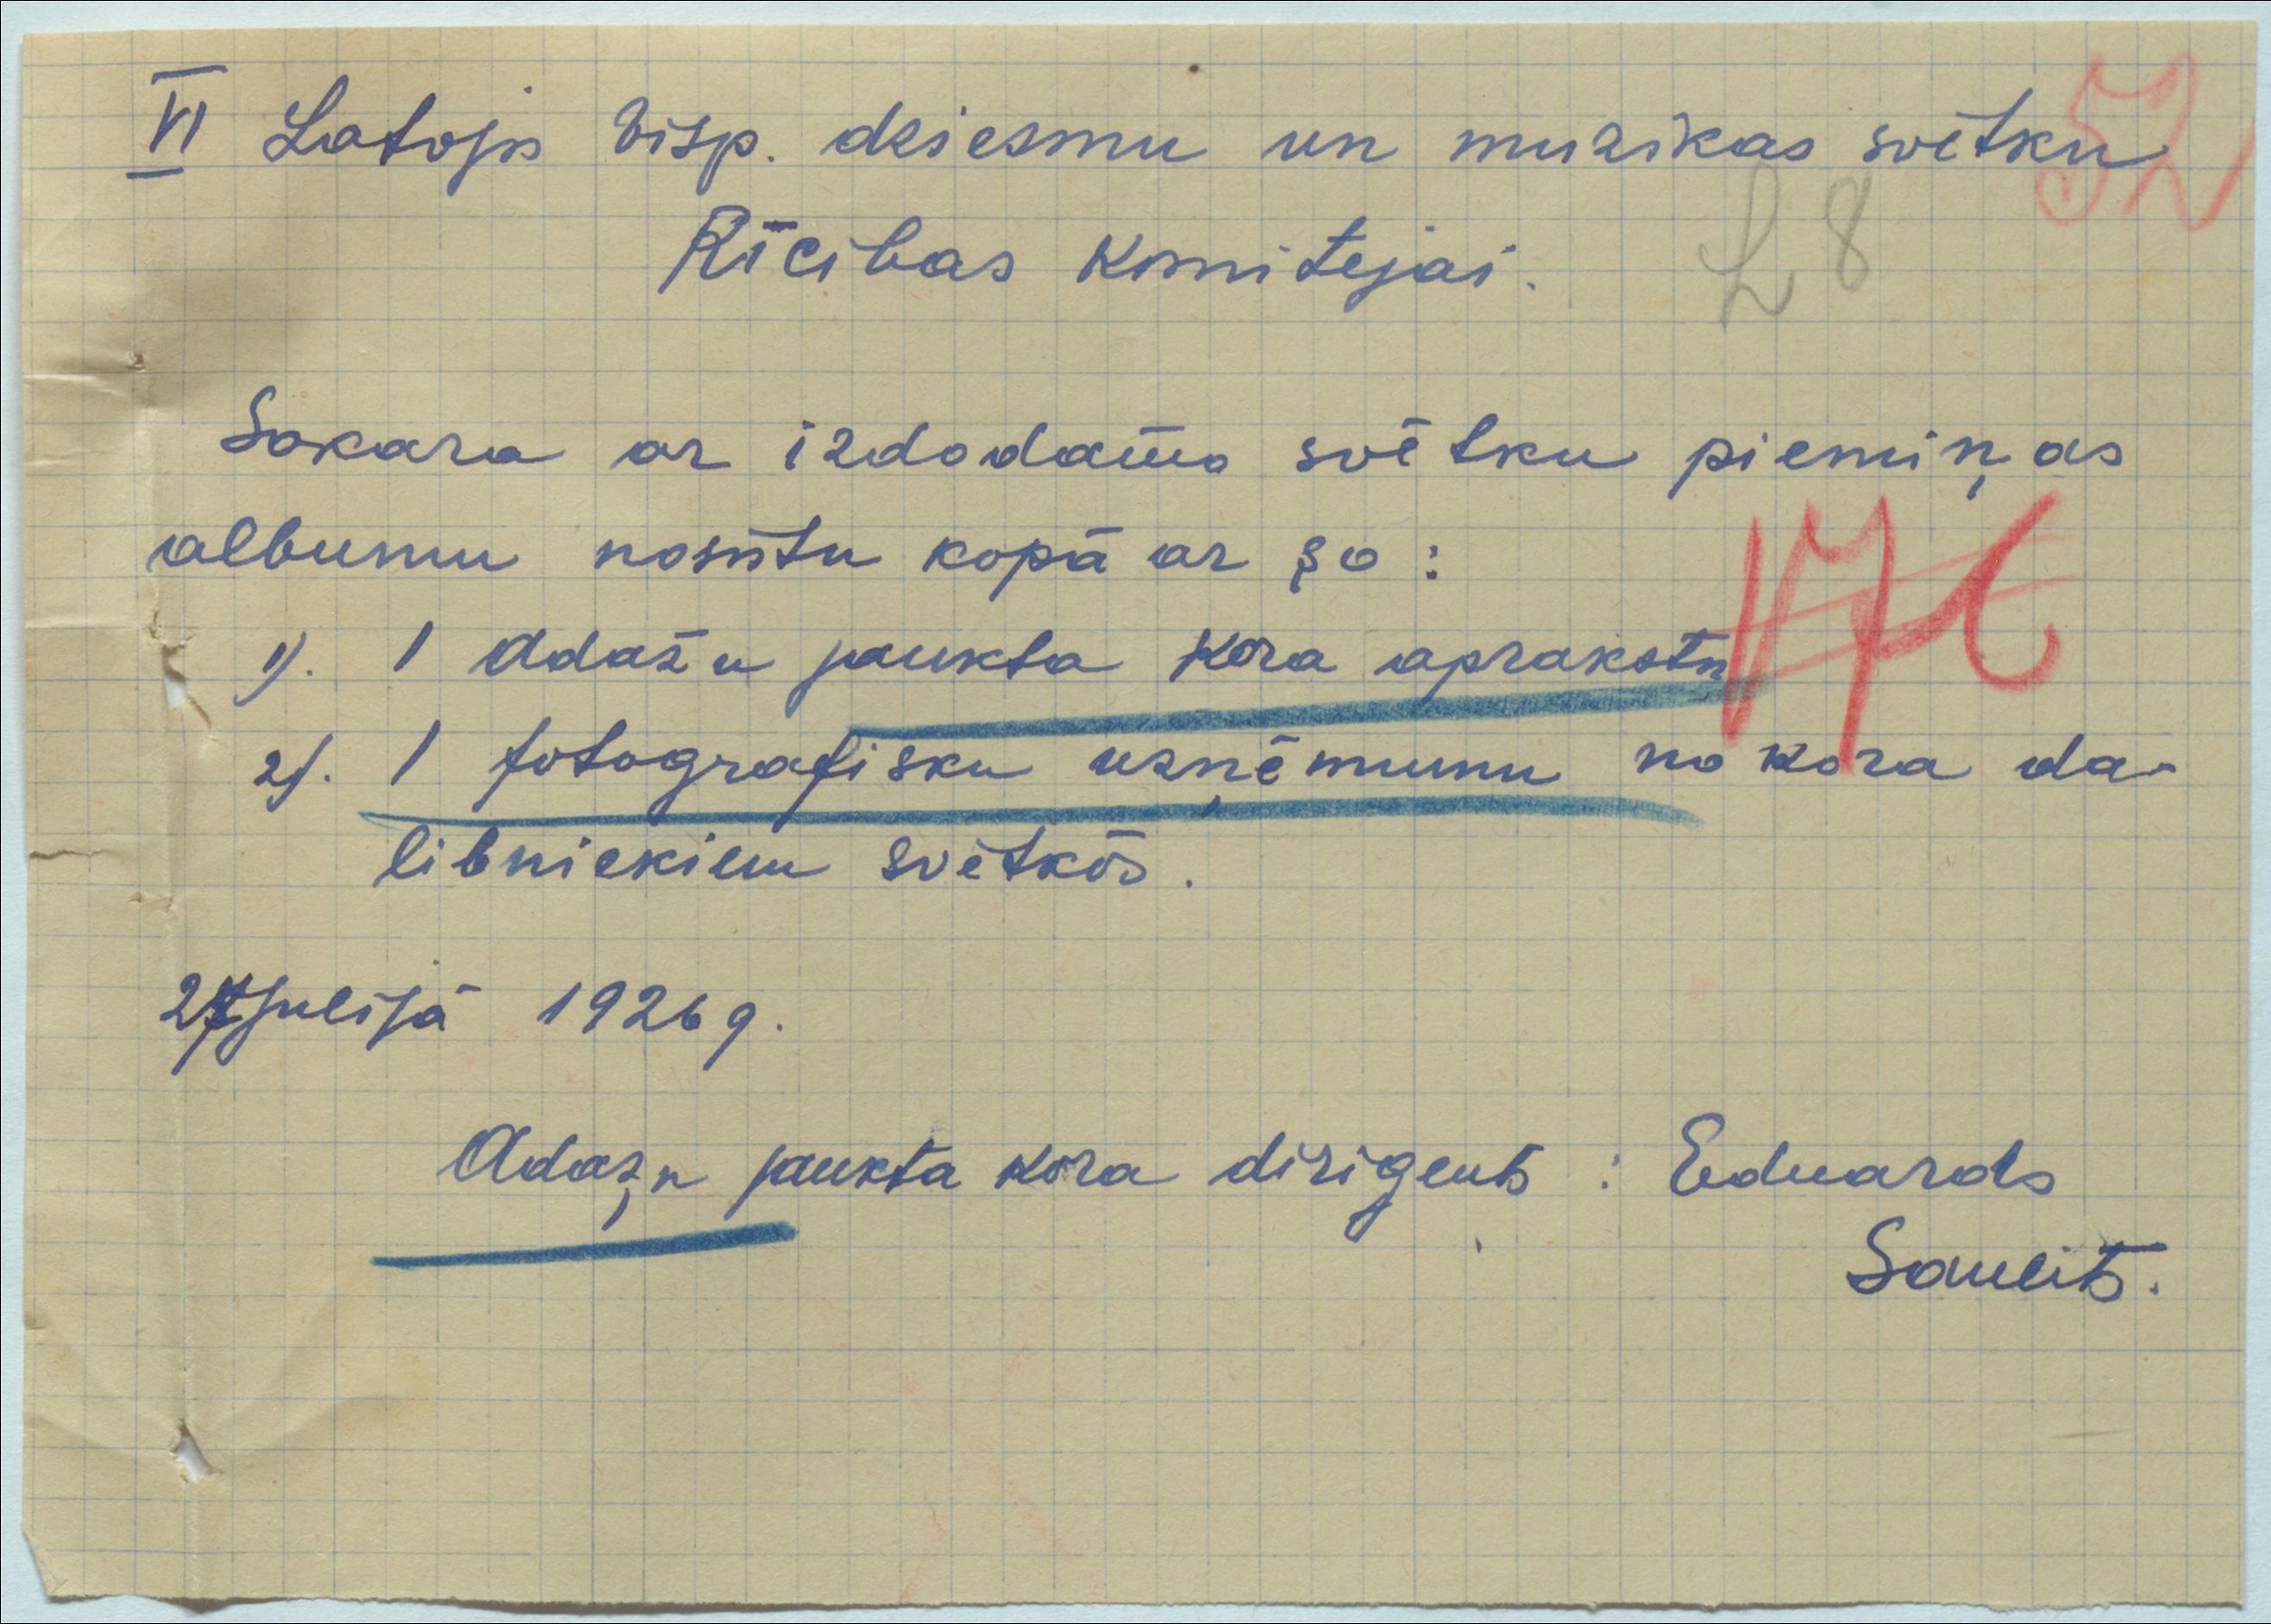 VI Latvijas Visp. dziesmu un muzikas svētku
52
Rīcibas Komitejai.
L 8
Sakara ar izdodamo svētku piemiņas
albumu nosūtu kopā ar šo:
176
1). 1 Adažu jaukta kora aprakstu
2). 1 fotografisku uzņēmumu no kora da-
libniekiem svētkōs.
27 julijā 1926 g.
Adažu jaukta kora dirigents : Eduards
Saulits.